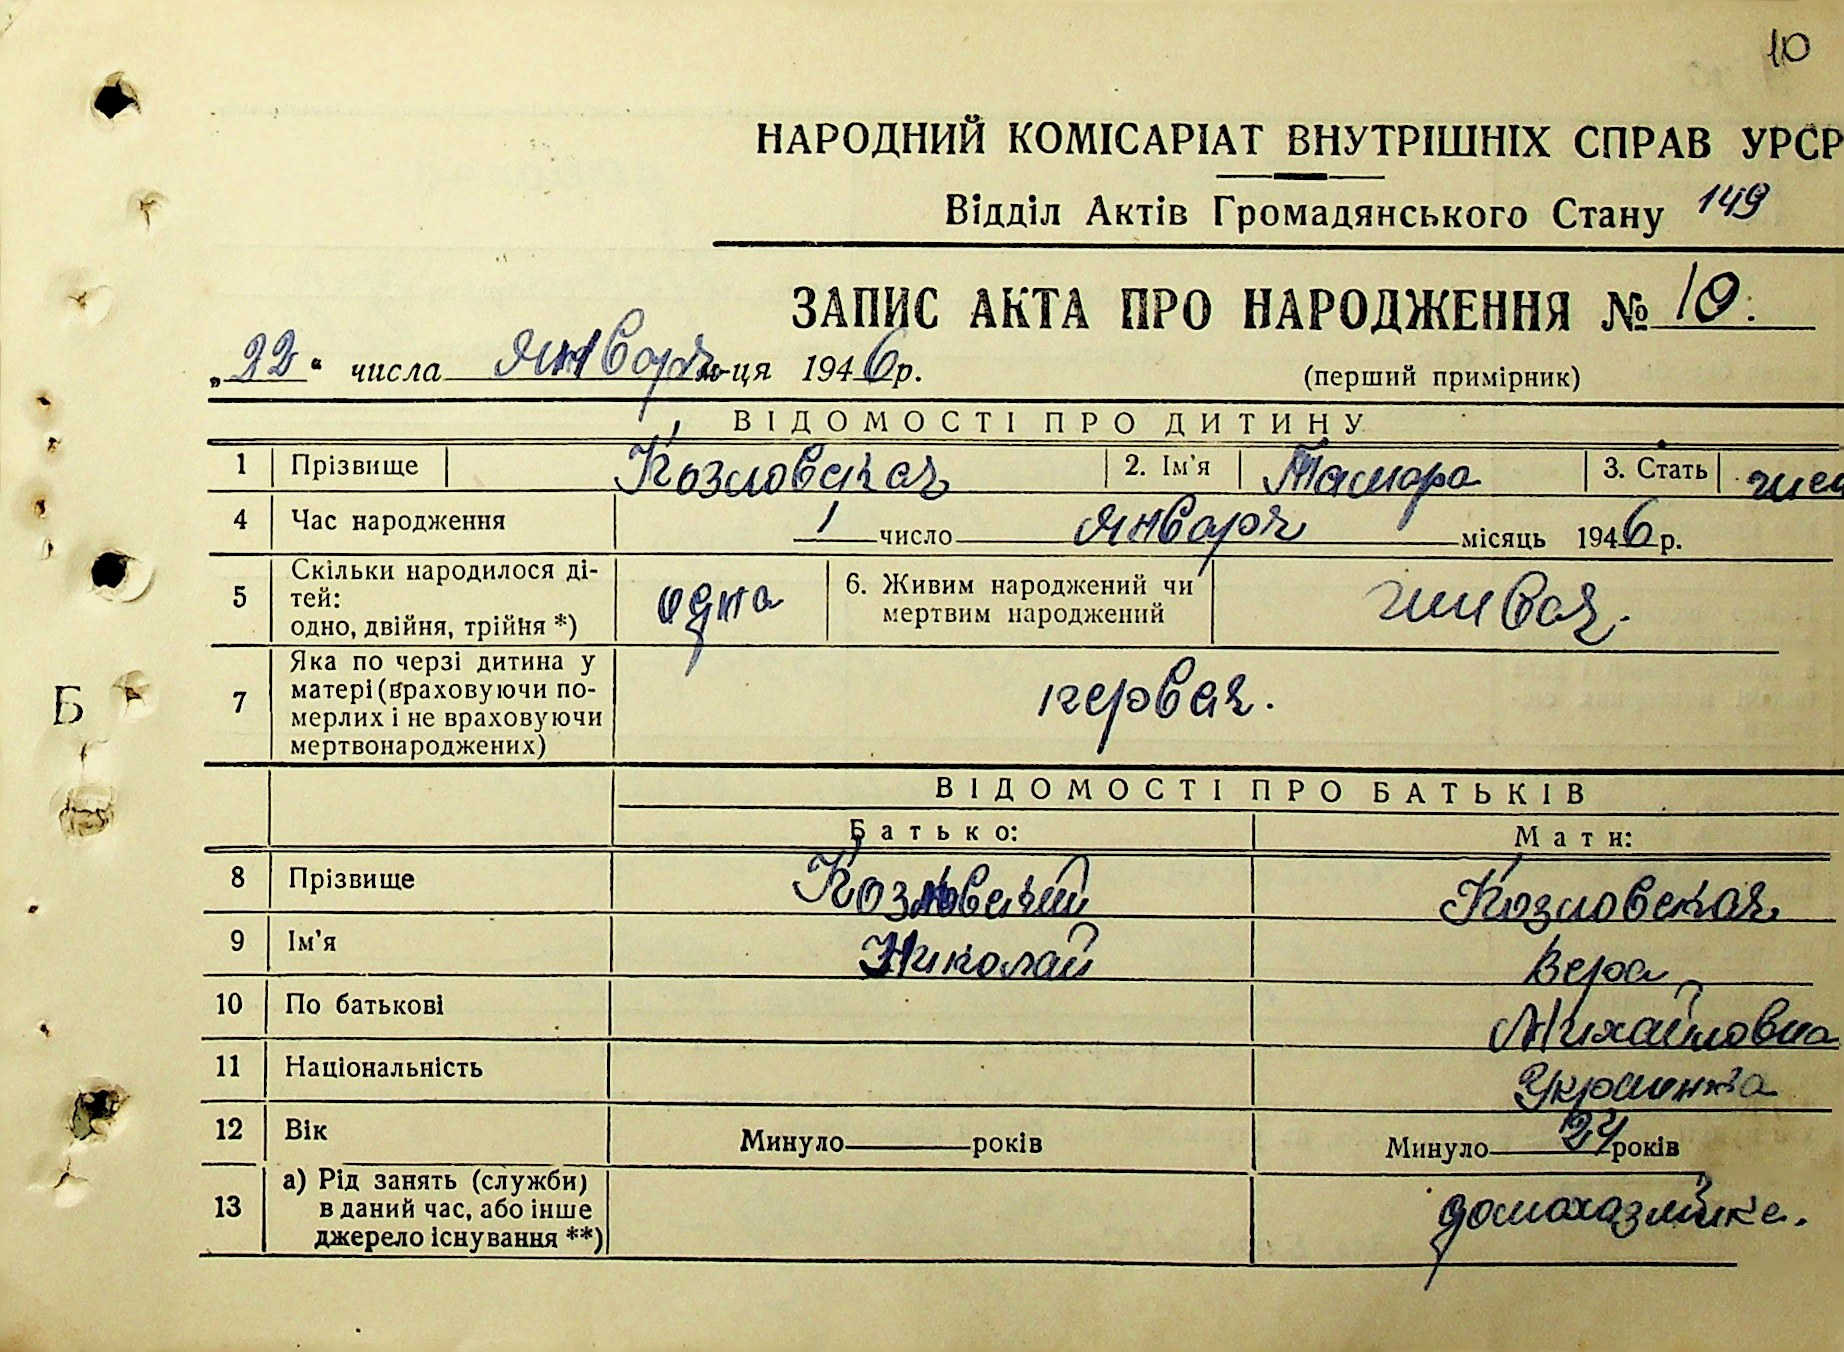 10
НАРОДНИЙ КОМІСАРІАТ ВНУТРІШНІХ СПРАВ УРСР
Відділ Актів Громадянського Стану 149
ЗАПИС АКТА ПРО НАРОДЖЕННЯ № 10.
„22“ числа января м-ця 1946 р. (перший примірник)
ВІДОМОСТІ ПРО ДИТИНУ
1 Прізвище Козловская 2. Ім'я Тамара 3. Стать жен
4 Час народження 1 число января місяць 1946 р.
5 Скільки народилося ді-
тей:
одно, двійня, трійня *) одна 6. Живим народжений чи
мертвим народжений живая.
7 Яка по черзі дитина у
матері (враховуючи по-
мерлих і не враховуючи
мертвонароджених) первая.
ВІДОМОСТІ ПРО БАТЬКІВ
Батько: Мати:
8 Прізвище Козловский Козловская
9 Ім'я Николай Вера
10 По батькові Михайловна
11 Національність Украинка
12 Вік Минуло років Минуло 24 років
13 а) Рід занять (служби)
в даний час, або інше
джерело існування **) домохазяйке.
Б